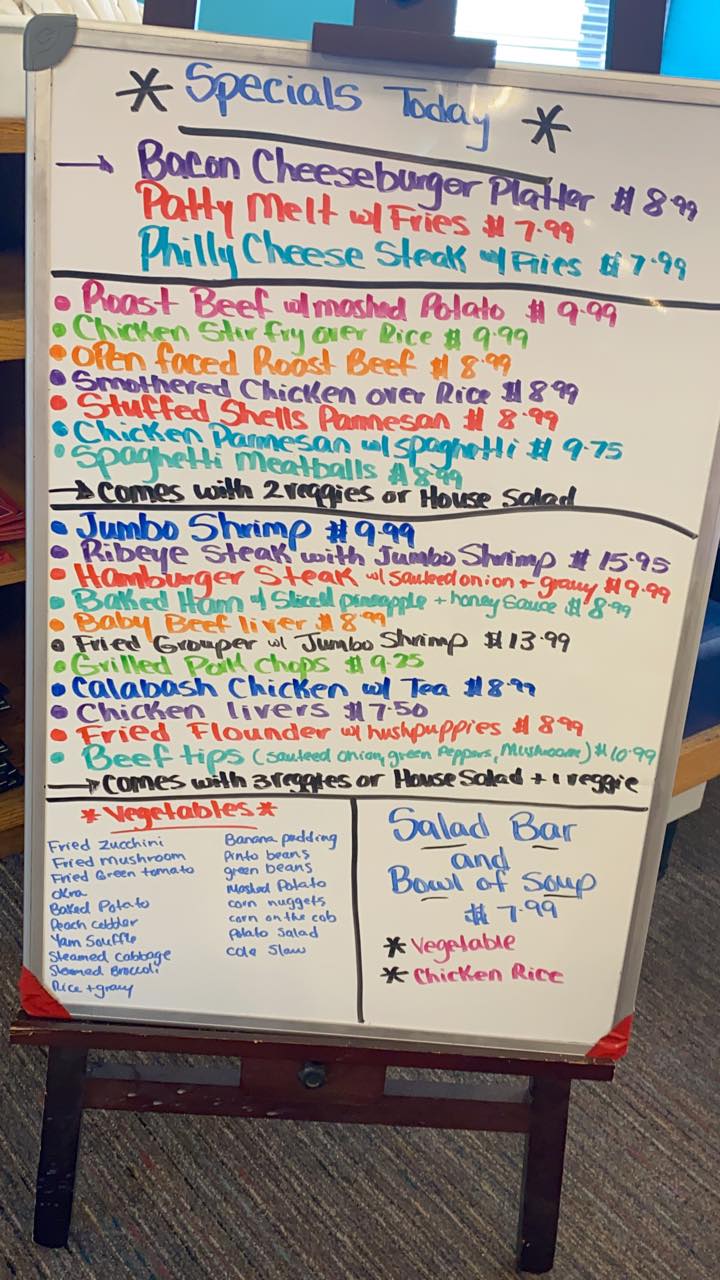 * Specials Today *
→ Bacon Cheeseburger Platter $ 8.99
Patty Melt w/ Fries $ 7.99
Philly Cheese Steak w/ Fries $ 7.99
• Roast Beef w/ mashed Potato $ 9.99
• Chicken Stir fry over Rice $ 9.99
• Open faced Roast Beef $ 8.99
• Smothered Chicken over Rice $ 8.99
• Stuffed Shells Parmesan $ 8.99
• Chicken Parmesan w/ spaghetti $ 9.75
• Spaghetti Meatballs $ 8.99
→ Comes with 2 veggies or House Salad
• Jumbo Shrimp $ 9.99
• Ribeye Steak with Jumbo Shrimp $ 15.95
• Hamburger Steak w/ sauteed onion + gravy $ 9.99
• Baked Ham w/ Sliced pineapple + honey sauce $ 8.99
• Baby Beef liver $ 8.99
• Fried Grouper w/ Jumbo Shrimp $ 13.99
• Grilled Pork chops $ 9.25
• Calabash Chicken w/ Tea $ 8.99
• Chicken livers $ 7.50
• Fried Flounder w/ hushpuppies $ 8.99
• Beef tips (sauteed onion, green Peppers, Mushroom) $ 10.99
→ Comes with 3 veggies or House Salad + 1 veggie
* Vegetables *
Fried Zucchini
Fried Mushroom
Fried Green tomato
okra
Baked Potato
Peach cobbler
Yam Souffle
Steamed Cabbage
Steamed Broccoli
Rice + gravy
Banana pudding
Pinto beans
green beans
Mashed Potato
corn nuggets
corn on the cob
Potato Salad
cole Slaw
Salad Bar
and
Bowl of Soup
$ 7.99
* Vegetable
* Chicken Rice